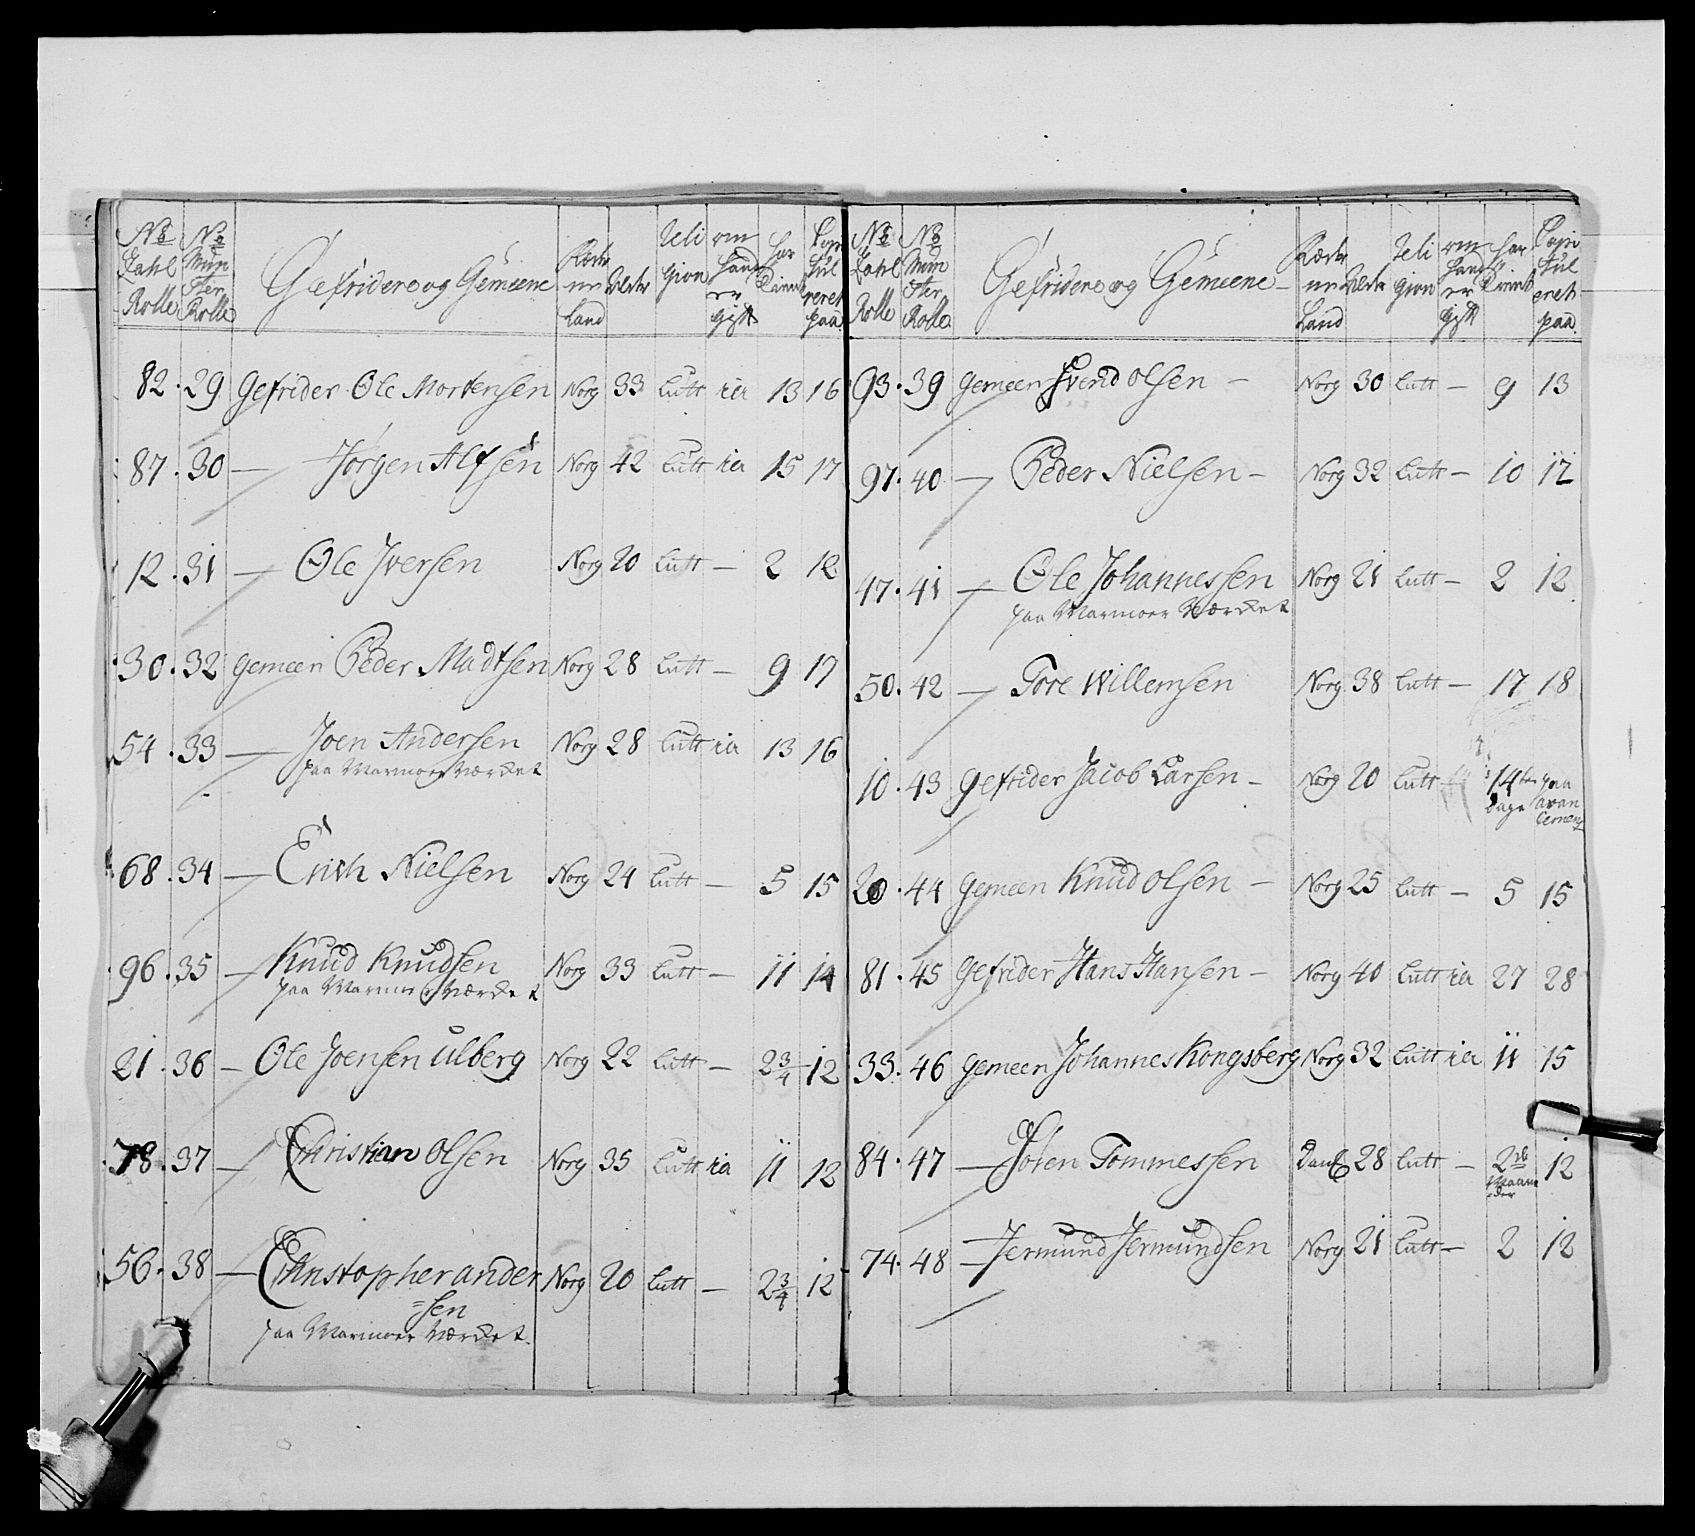 No Zahl Rolle | No Mun ster Rolle | Gefridere og Gemeene | Fæderne Land | Alder | Reli gion | om hand er gift | har tient | Capi tul leret paa
82 . 29 Gefrider Ole Mortensen Norg 33 Lutt ia 13 16
87 . 30 — Jørgen Alfsen Norg 42 Lutt ia 15 17
12 . 31 — Ole Iversen Norg 20 Lutt — 2 12
30 . 32 Gemeen Peder Madtsen Norg 28 Lutt — 9 17
54 . 33 — Joen Andersen Norg 28 Lutt ia 13 16
paa Marmoer Værket
68 . 34 — Erich Nielsen Norg 24 Lutt — 5 15
96 . 35 — Knud Knudsen Norg 33 Lutt — 11 14
paa Marmoer Værket
21 . 36 — Ole Joensen Ulberg Norg 22 Lutt — 2 3/4 12
78 . 37 — Christian Olsen Norg 35 Lutt ia 11 12
56 . 38 — Christopher Ander Norg 20 Lutt — 2 3/4 12
=sen
paa Marmoer Værket
No Zahl Rolle | No Mun ster Rolle | Gefridere og Gemeene | Fæderne Land | Alder | Reli gion | om hand er gift | har tient | Capi tul eret paa
93 . 39 Gemeen Svend Olsen — Norg 30 Lutt — 9 13
97 . 40 — Peder Nielsen — Norg 32 Lutt — 10 12
47 . 41 — Ole Johannessen Norg 21 Lutt — 2 12
paa Marmoer Værket
50 . 42 — Tore Willemsen Norg 38 Lutt — 17 18
10 . 43 Gefrider Jacob Larsen — Norg 20 Lutt 14ten Dage paa avan cement
20 . 44 Gemeen Knud Olsen — Norg 25 Lutt — 5 15
81 . 45 Gefrider Hans Hansen — Norg 40 Lutt ia 27 28
33 . 46 Gemeen Johannes Kongsberg Norg 32 Lutt ia 11 15
84 . 47 — Søfen Tommessen Danß 28 Lutt — 2 Maane der 12
74 . 48 — Jermund Jermundsen Norg 21 Lutt — 2 12